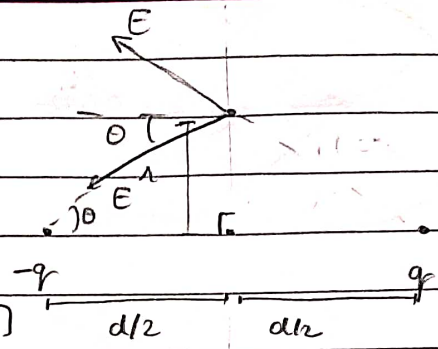 E
θ
r
E
θ
-q
q
d/2
d/2